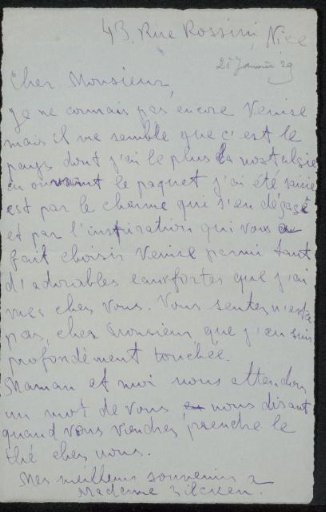 43 Rue Rossini, Nice
25 Janvier 29
Cher Monsieur,
Je ne connais pas encore Venise
mais il me semble que c'est le
pays dont j'ai le plus la nostalgie
en ouvrant le paquet j'ai été saisie
est par le charme qui s'en dégage
et par l'inspiration qui vous a
fait choisir Venise parmi tant
d'adorables eauxfortes que j'ai
vues chez vous. Vous sentez n'est ce
pas, cher Monsieur que j'en suis
profondément touchée.
Maman et moi nous attendons
un mot de vous nous disant
quand vous viendrez prendre le
thé chez nous.
Mes meilleurs souvenirs à
Madame Zilcken.